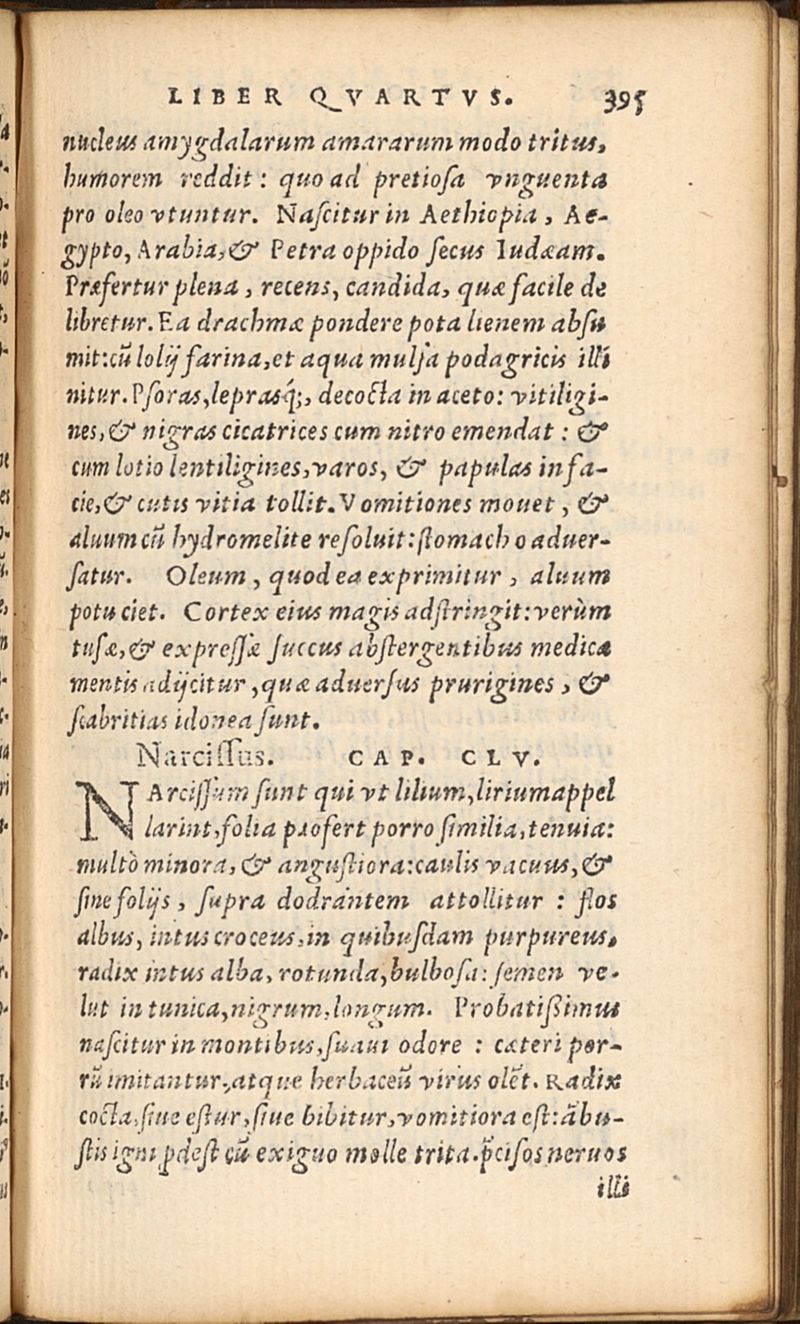 LIBER QVARTVS. 395
nucleus amygdalarum amararum modo tritus,
humorem reddit: quo ad pretiosa vnguenta
pro oleo vtuntur. Nascitur in Aethiopia, Ae-
gypto, Arabia, & Petra oppido secus Iudæam.
Præfertur plena, recens, candida, quæ facile de
libretur. Ea drachmæ pondere pota lienem absu
mit: cū lolij farina, et aqua mulsa podagricis illi
nitur. Psoras, leprasq́;, decocta in aceto: vitiligi-
nes, & nigras cicatrices cum nitro emendat: &
cum lotio lentiligines, varos, & papulas in fa-
cie, & cutis vitia tollit. Vomitiones mouet, &
aluum cū hydromelite resoluit: stomacho aduer-
satur. Oleum, quod ea exprimitur, aluum
potu ciet. Cortex eius magis adstringit: verùm
tusæ, & expressæ succus abstergentibus medica
mentis adijcitur, quæ aduersus prurigines, &
scabritias idonea sunt.
Narcissus. CAP. CLV.
NArcissum sunt qui vt lilium, lirium appel
larint, folia profert porro similia, tenuia:
multò minora, & angustiora: caulis vacuus, &
sine folijs, supra dodrantem attollitur: flos
albus, intus croceus, in quibusdam purpureus,
radix intus alba, rotunda, bulbosa: semen ve-
lut in tunica, nigrum, longum. Probatißimus
nascitur in montibus, suaui odore: cæteri por-
rū imitantur, atque herbaceū virus olēt. Radix
cocta, siue estur, siue bibitur, vomitiora est: ābu-
stis igni ꝓdest cū exiguo melle trita. p̄cisos neruos
illi